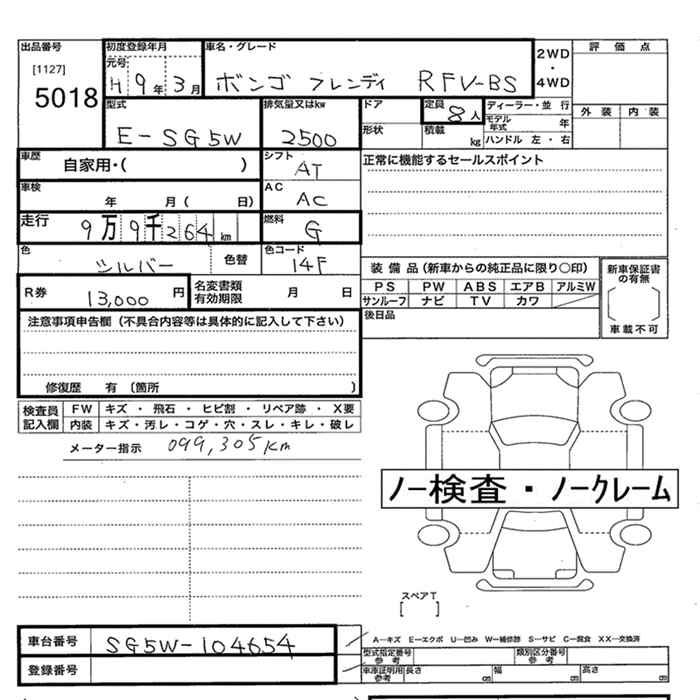 出品番号 初度登録年月 車名・グレード 評価点
[1127] 元号 2WD・4WD
5018 H 9年 3月 ボンゴ フレンディ RFV-BS
型式 排気量又はkw ドア 定員 8人 ディーラー・並行 外装 内装
モデル年式 年
E-SG5W 2500 形状 積載 kg ハンドル 左・右
車歴 自家用・( ) シフト AT 正常に機能するセールスポイント
車検 年 月( 日) AC AC
走行 9万9千264km 燃料 G
色 シルバー 色替 色コード 14F
装備品(新車からの純正品に限り○印) 新車保証書の有無
R券 13,000円 名変書類有効期限 月 日 PS PW ABS エアB アルミW
サンルーフ ナビ TV カワ
車載不可
注意事項申告欄(不具合内容等は具体的に記入して下さい) 後日品
修復歴 有 〔箇所 〕
検査員記入欄 FW キズ・飛石・ヒビ割・リペア跡・X要
内装 キズ・汚レ・コゲ・穴・スレ・キレ・破レ
メーター指示 099,305Km
ノー検査・ノークレーム
スペアT
[ ]
A―キズ E―エクボ U―凹み W―補修跡 S―サビ C―腐食 XX―交換済
車台番号 SG5W-104654 型式指定番号 参考 類別区分番号 参考
登録番号 車庫証明用参考 長さ cm 幅 cm 高さ cm